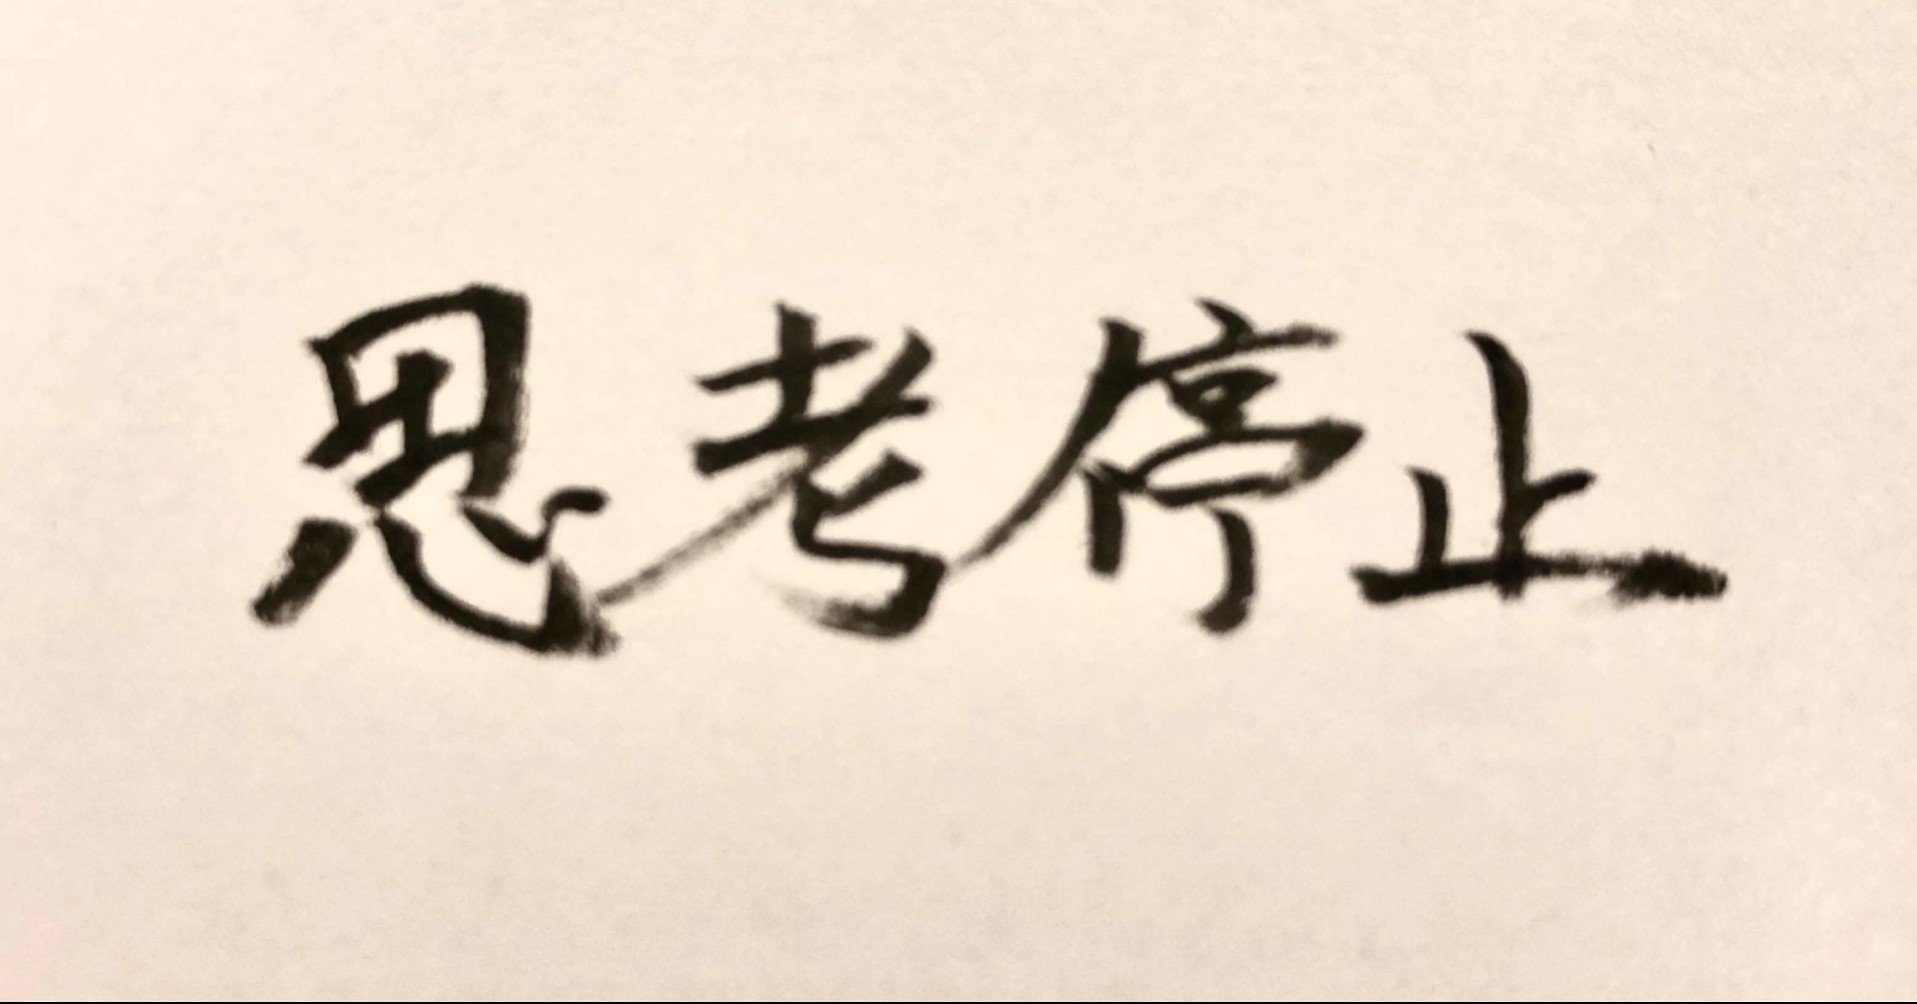 思考停止